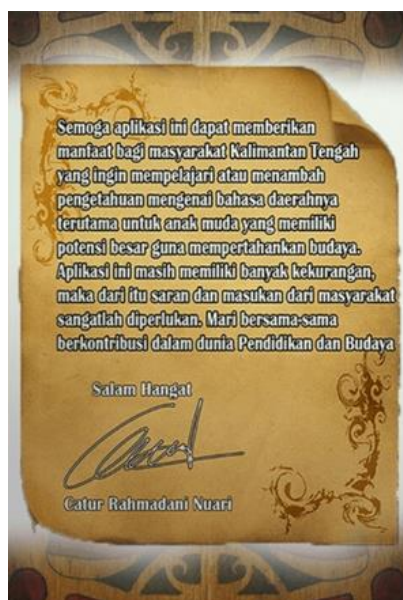 Semoga aplikasi ini dapat memberikan
manfaat bagi masyarakat Kalimantan Tengah
yang ingin mempelajari atau menambah
pengetahuan mengenai bahasa daerahnya
terutama untuk anak muda yang memiliki
potensi besar guna mempertahankan budaya.
Aplikasi ini masih memiliki banyak kekurangan,
maka dari itu saran dan masukan dari masyarakat
sangatlah diperlukan. Mari bersama-sama
berkontribusi dalam dunia Pendidikan dan Budaya
Salam Hangat
Catur Rahmadani Nuari